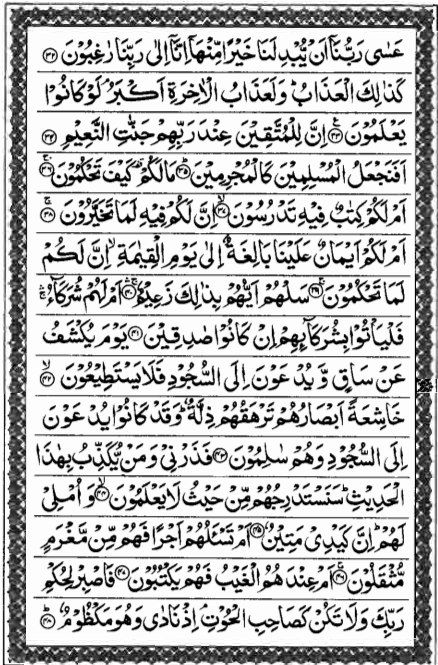 عَسٰى رَبُّنَاۤ اَنْ يُّبْدِلَنَا خَيْرًا مِّنْهَاۤ اِنَّاۤ اِلٰى رَبِّنَا رٰغِبُوْنَ ﴿۳۲﴾
كَذٰلِكَ الْعَذَابُ ؕ وَلَعَذَابُ الْاٰخِرَةِ اَكْبَرُ ۘ لَوْ كَانُوْا
يَعْلَمُوْنَ ﴿۳۳﴾ اِنَّ لِلْمُتَّقِيْنَ عِنْدَ رَبِّهِمْ جَنّٰتِ النَّعِيْمِ ﴿۳۴﴾
اَفَنَجْعَلُ الْمُسْلِمِيْنَ كَالْمُجْرِمِيْنَ ﴿۳۵﴾ مَا لَكُمْ ۥ كَيْفَ تَحْكُمُوْنَ ﴿۳۶﴾
اَمْ لَكُمْ كِتٰبٌ فِيْهِ تَدْرُسُوْنَ ﴿۳۷﴾ اِنَّ لَكُمْ فِيْهِ لَمَا تَخَيَّرُوْنَ ﴿۳۸﴾
اَمْ لَكُمْ اَيْمَانٌ عَلَيْنَا بَالِغَةٌ اِلٰى يَوْمِ الْقِيٰمَةِ ۙ اِنَّ لَكُمْ
لَمَا تَحْكُمُوْنَ ﴿۳۹﴾ سَلْهُمْ اَيُّهُمْ بِذٰلِكَ زَعِيْمٌ ﴿۴۰﴾ اَمْ لَهُمْ شُرَكَآءُ ۛۚ
فَلْيَاْتُوْا بِشُرَكَآىِٕهِمْ اِنْ كَانُوْا صٰدِقِيْنَ ﴿۴۱﴾ يَوْمَ يُكْشَفُ
عَنْ سَاقٍ وَّيُدْعَوْنَ اِلَى السُّجُوْدِ فَلَا يَسْتَطِيْعُوْنَ ﴿۴۲﴾
خَاشِعَةً اَبْصَارُهُمْ تَرْهَقُهُمْ ذِلَّةٌ ؕ وَقَدْ كَانُوْا يُدْعَوْنَ
اِلَى السُّجُوْدِ وَهُمْ سٰلِمُوْنَ ﴿۴۳﴾ فَذَرْنِيْ وَمَنْ يُّكَذِّبُ بِهٰذَا
الْحَدِيْثِ ؕ سَنَسْتَدْرِجُهُمْ مِّنْ حَيْثُ لَا يَعْلَمُوْنَ ﴿۴۴﴾ وَاُمْلِيْ
لَهُمْ ؕ اِنَّ كَيْدِيْ مَتِيْنٌ ﴿۴۵﴾ اَمْ تَسْـَٔلُهُمْ اَجْرًا فَهُمْ مِّنْ مَّغْرَمٍ
مُّثْقَلُوْنَ ﴿۴۶﴾ اَمْ عِنْدَهُمُ الْغَيْبُ فَهُمْ يَكْتُبُوْنَ ﴿۴۷﴾ فَاصْبِرْ لِحُكْمِ
رَبِّكَ وَلَا تَكُنْ كَصَاحِبِ الْحُوْتِ ۘ اِذْ نَادٰى وَهُوَ مَكْظُوْمٌ ﴿۴۸﴾